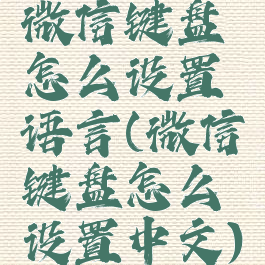 微信键盘
怎么设置
语言(微信
键盘怎么
设置中文)